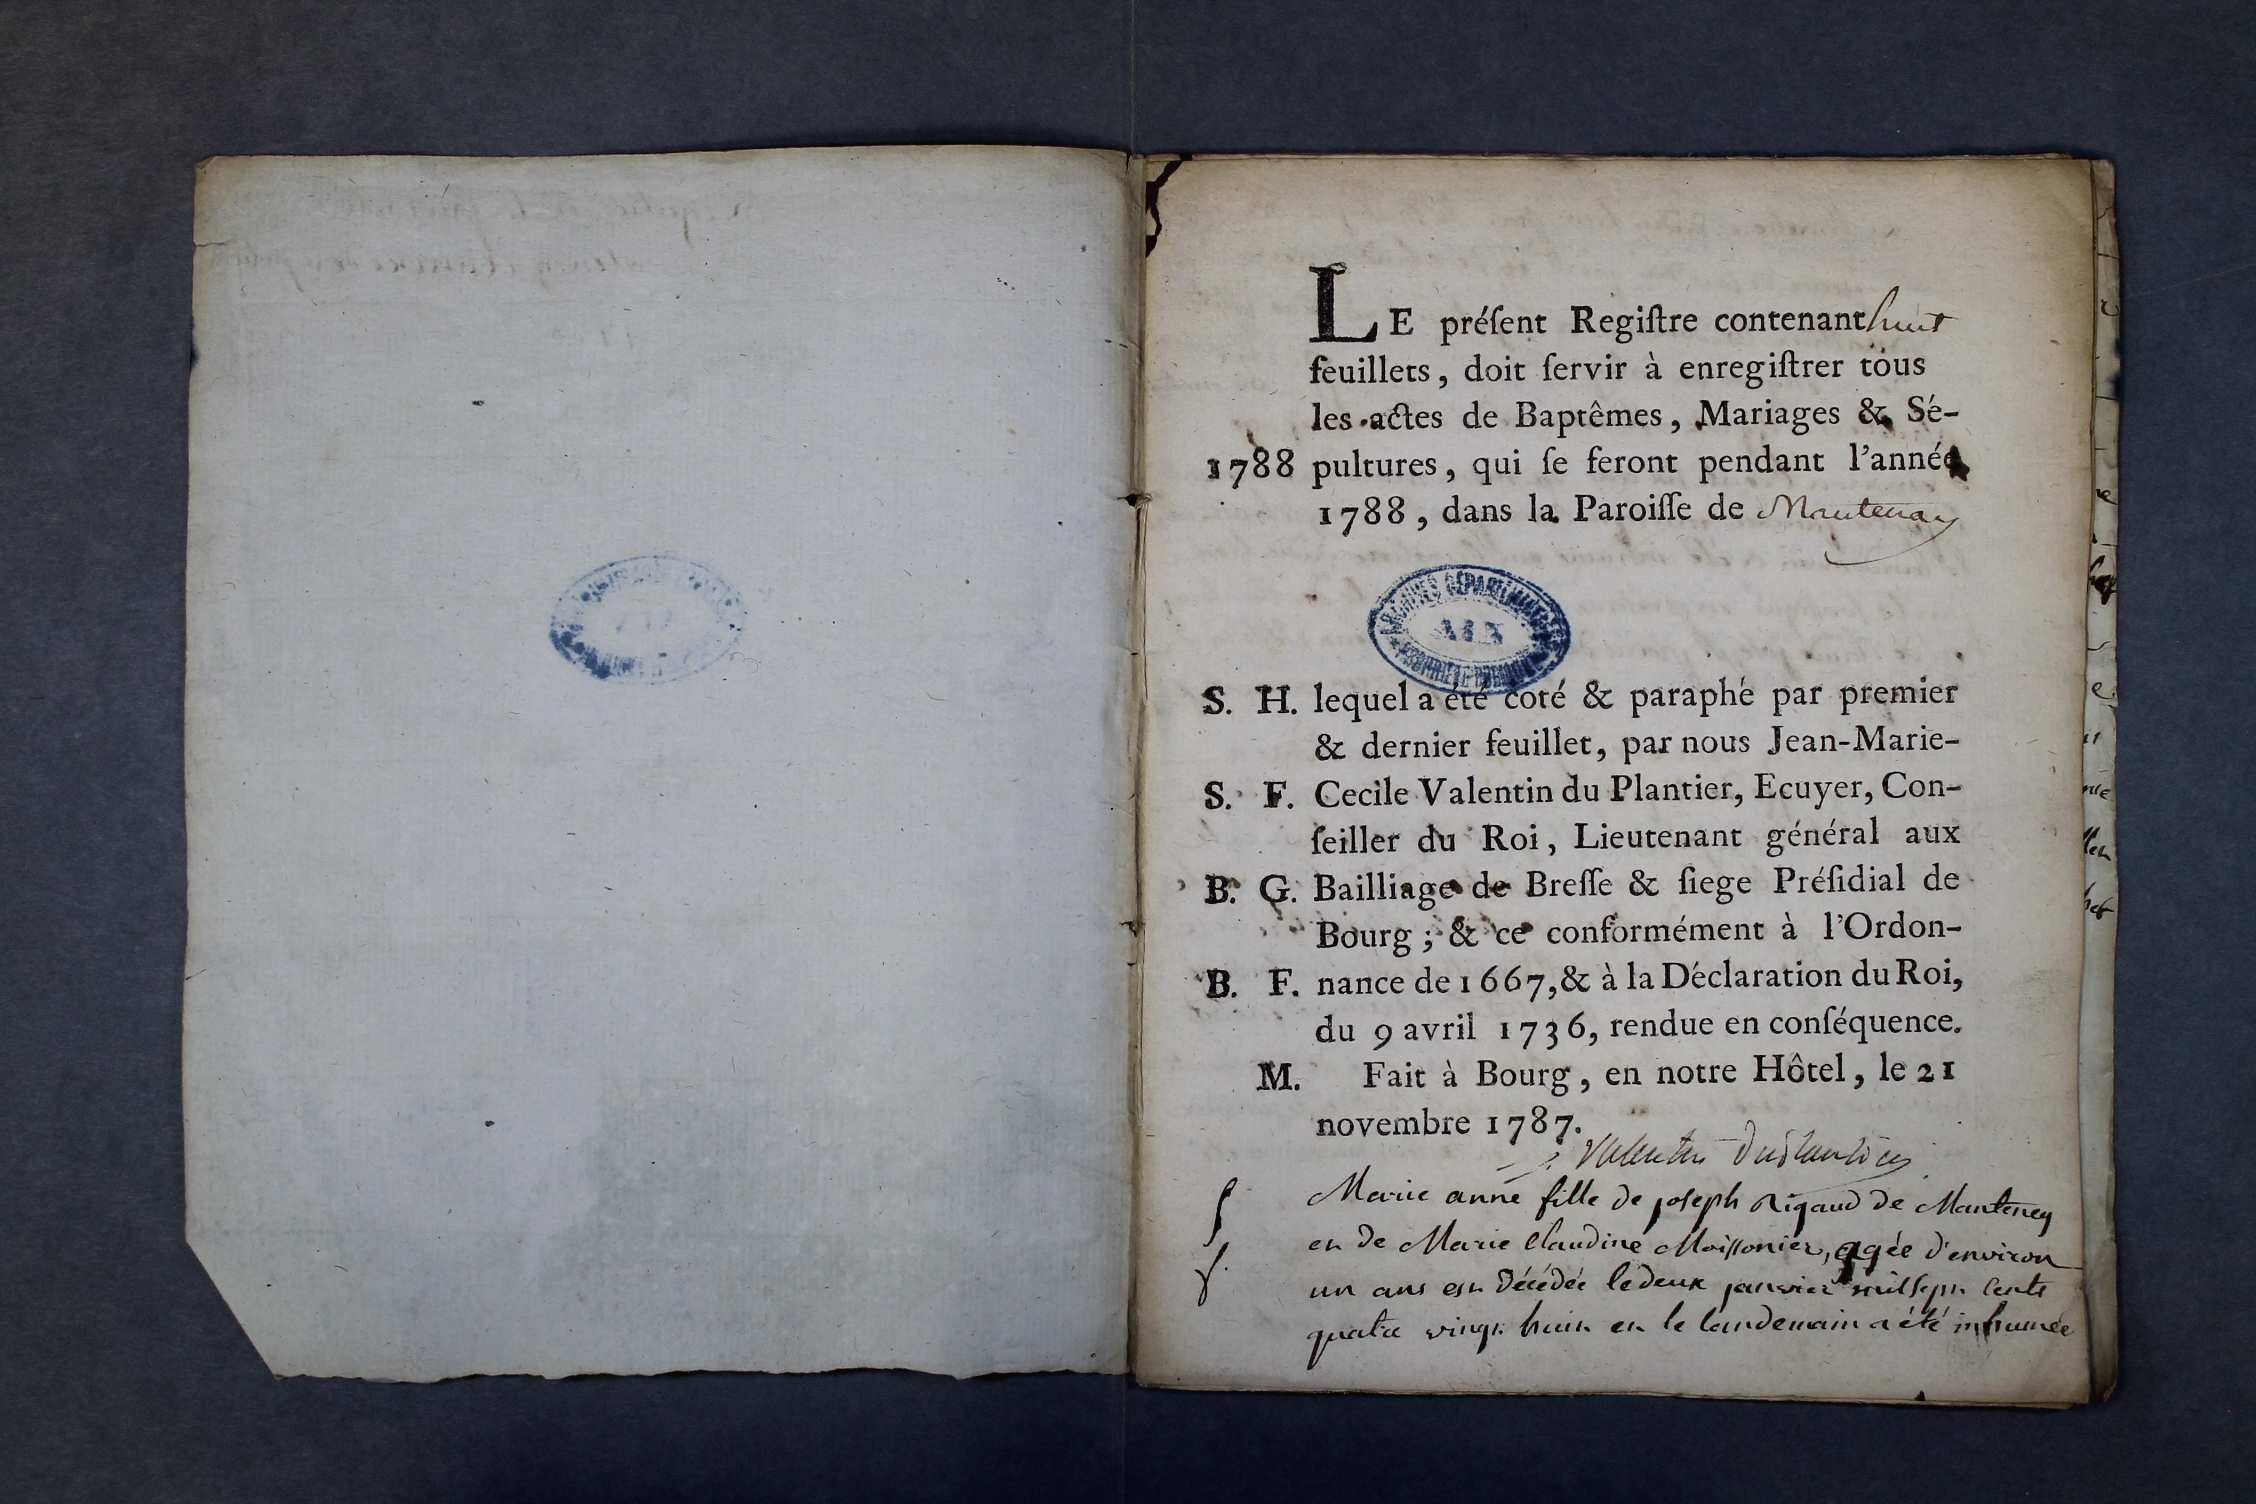 LE préſent Regiſtre contenant huit
feuillets, doit ſervir à enregiſtrer tous
les actes de Baptêmes, Mariages & Sé-
1788 pultures, qui ſe feront pendant l'année
1788, dans la Paroiſſe de Mantenay
ARCHIVES DÉPARTEMENTALES
AIN
PROPRIÉTÉ PUBLIQUE
S. H. lequel a été coté & paraphé par premier
& dernier feuillet, par nous Jean-Marie-
S. F. Cecile Valentin du Plantier, Ecuyer, Con-
ſeiller du Roi, Lieutenant général aux
B. G. Bailliage de Breſſe & ſiege Préſidial de
Bourg ; & ce conformément à l'Ordon-
B. F. nance de 1667, & à la Déclaration du Roi,
du 9 avril 1736, rendue en conſéquence.
M. Fait à Bourg, en notre Hôtel, le 21
novembre 1787.
Valentin Duplantier
Marie anne fille de joseph Rigaud de Manteney
et de Marie Claudine Moissonier, agée d'environ
un ans est décédée le deux janvier mil sept cents
quatre vingt huit et le landemain a été inhumée